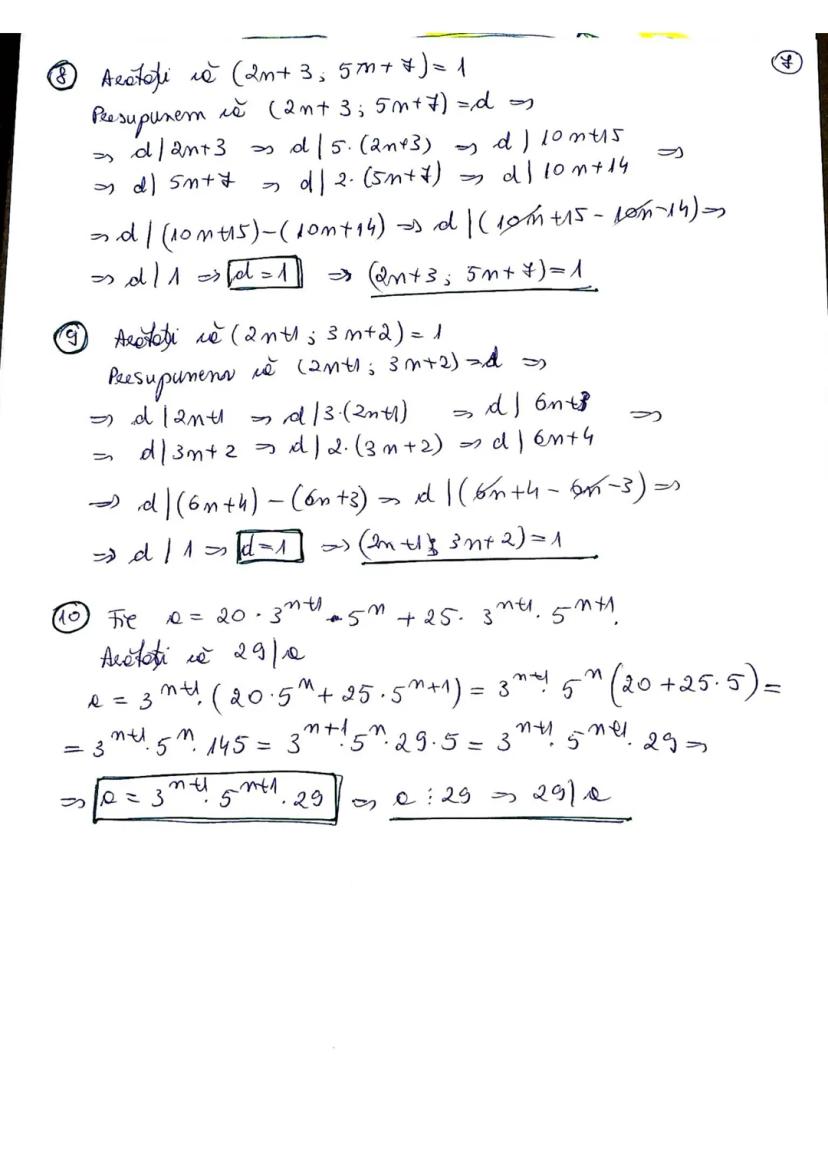 7
8 Arătați că (2n+3; 5n+7)=1
Presupunem că (2n+3; 5n+7)=d ⇒
⇒ d|2n+3 ⇒ d|5·(2n+3) ⇒ d|10n+15 ⇒
⇒ d|5n+7 ⇒ d|2·(5n+7) ⇒ d|10n+14
⇒ d|(10n+15)-(10n+14) ⇒ d|(10n+15-10n-14) ⇒
⇒ d|1 ⇒ d=1 ⇒ (2n+3; 5n+7)=1
9 Arătați că (2n+1; 3n+2)=1
Presupunem că (2n+1; 3n+2)=d ⇒
⇒ d|2n+1 ⇒ d|3·(2n+1) ⇒ d|6n+3 ⇒
⇒ d|3n+2 ⇒ d|2·(3n+2) ⇒ d|6n+4
⇒ d|(6n+4)-(6n+3) ⇒ d|(6n+4-6n-3) ⇒
⇒ d|1 ⇒ d=1 ⇒ (2n+1; 3n+2)=1
10 Fie a = 20·3^(n+1)·5^n + 25·3^(n+1)·5^(n+1).
Arătați că 29|a
a = 3^(n+1)·(20·5^n + 25·5^(n+1)) = 3^(n+1)·5^n(20+25·5) =
= 3^(n+1)·5^n·145 = 3^(n+1)·5^n·29·5 = 3^(n+1)·5^(n+1)·29 ⇒
⇒ a = 3^(n+1)·5^(n+1)·29 ⇒ a⋮29 ⇒ 29|a